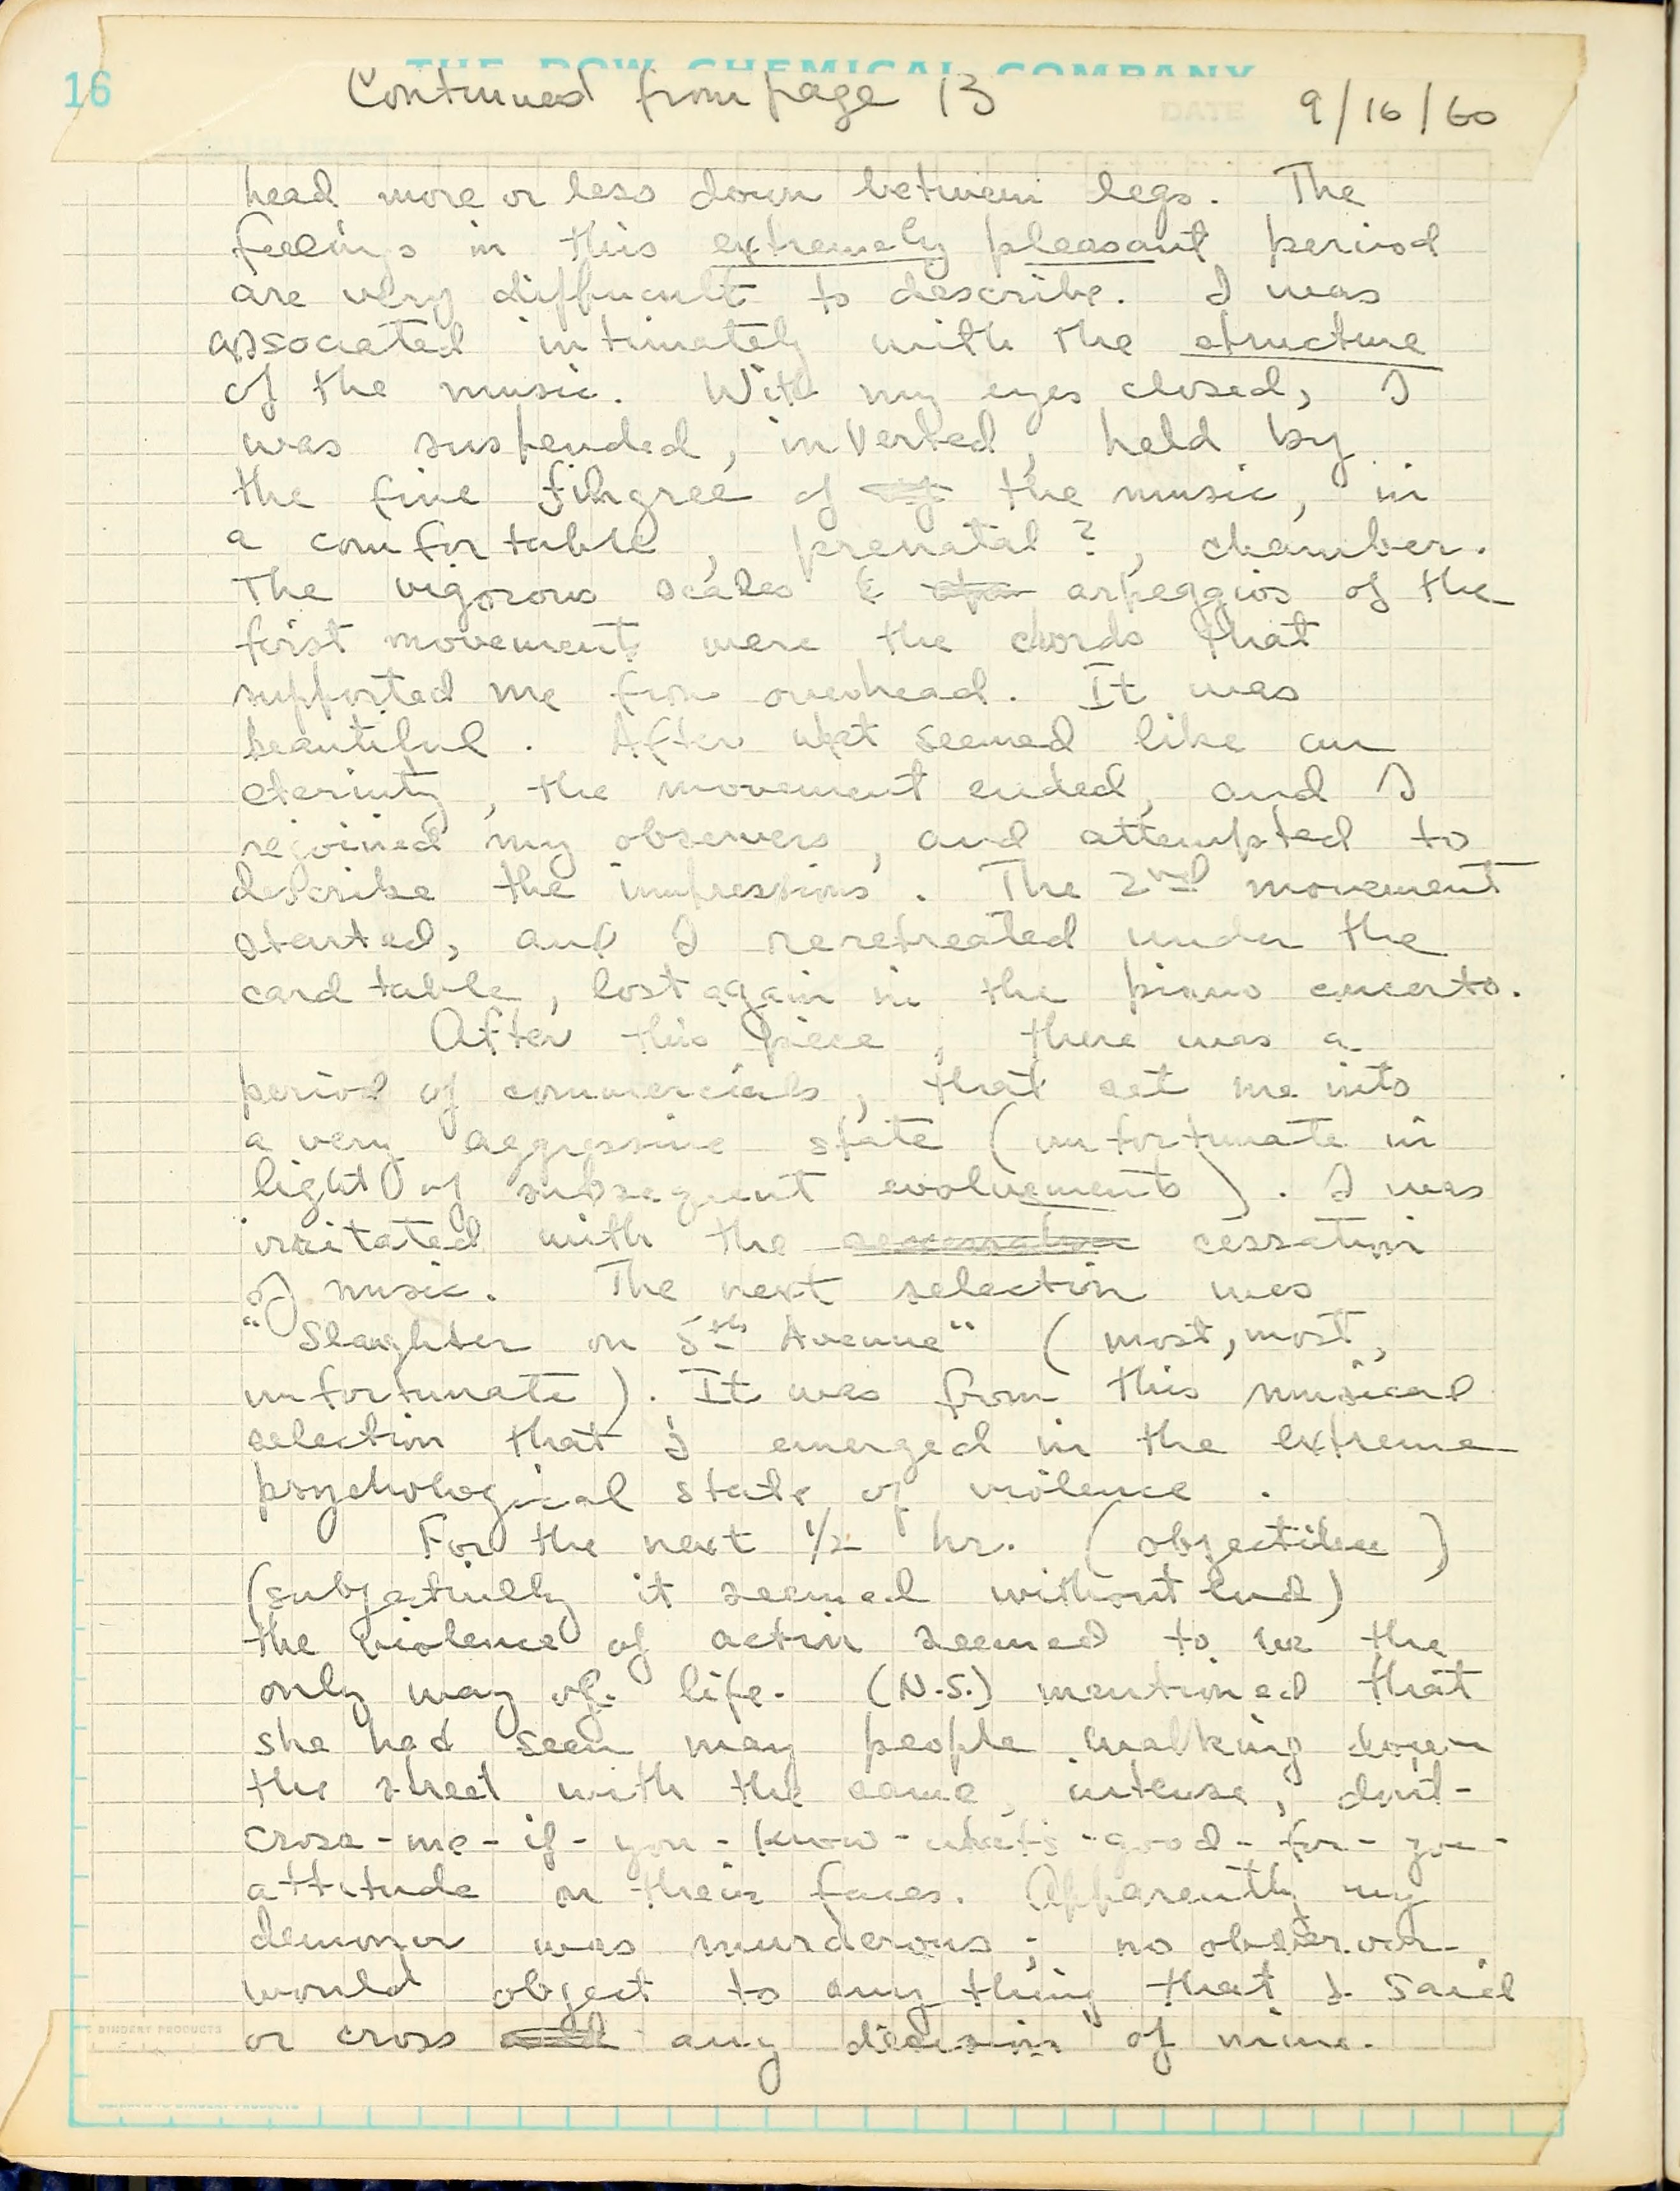 THE DOW CHEMICAL COMPANY
16
Continued from page 13
DATE
9/16/60
head more or less down between legs. The
feelings in this extremely pleasant period
are very difficult to describe. I was
associated intimately with the structure
of the music. With my eyes closed, I
was suspended, inverted, held by
the fine filigree of the music, in
a comfortable, prenatal?, chamber.
The vigorous scales & arpeggios of the
first movement were the chords that
supported me from overhead. It was
beautiful. After what seemed like an
eternity, the movement ended, and I
rejoined my observers, and attempted to
describe the impressions. The 2nd movement
started, and I reretreated under the
card table, lost again in the piano concerto.
After this piece, there was a
period of commercials, that set me into
a very aggressive state (unfortunate in
light of subsequent evolvements). I was
irritated with the cessation
of music. The next selection was
"Slaughter on 5th Avenue" (most, most,
unfortunate). It was from this musical
selection that I emerged in the extreme
psychological state of violence.
For the next 1/2 hr. (objective)
(subjectively it seemed without end)
the violence of action seemed to be the
only way of life. (N.S.) mentioned that
she had seen many people walking down
the street with the same, intense, don't-
cross-me-if-you-know-what's-good-for-you-
attitude on their faces. Apparently my
demenor was murderous; no observor
would object to any thing that I said
or cross any decision of mine.
BINDERY PRODUCTS